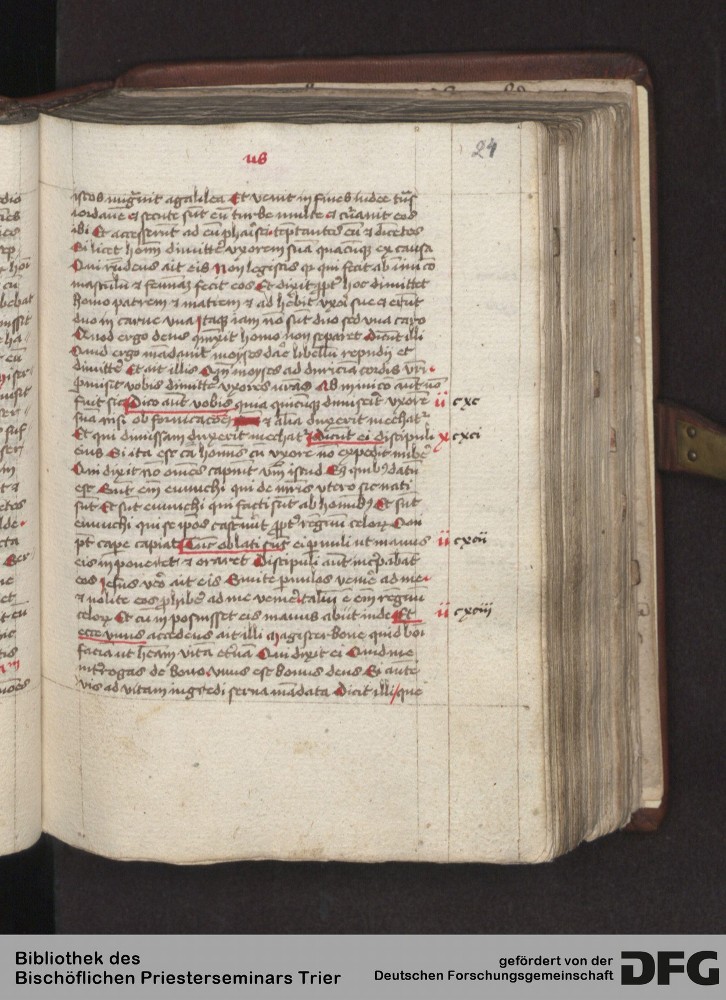 us
24
istos migrauit a galilea Et venit in fines iudee tns
iordanē et secute sūt eū turbe multe et curauit eos
ibi Et accesserūt ad eū pharisei teptantes eū et dicētes
Si licet homī dimittere vxorem suā quacūq ex causa
Qui rndens ait eis Non legistis q qui fecit ab inicio
masculū et feminā fecit eos Et dixit ppt hoc dimittet
homo patrem et matrem et adherebit vxori sue et erūt
duo in carne vna Itaq iam nō sūt duo sed vna caro
Quod ergo deus coniūxit homo non separet Dicūt illi
Quid ergo mādauit moyses dare libellū repudij et
dimittere Et ait illis Qm moyses ad duriciā cordis vri
pmisit vobis dimittere vxores vras Ab inicio aut nō
fuit sic Dico aut vobis quia quicūq dimiserit vxorē
ii cxc
suā nisi ob fornicacōem et aliā duxerit mechatr
Et qui dimissam duxerit mechatr Dicūt ei discipuli
x cxci
eius Si ita est cā hominis cū vxore no expedit nubere
Qui dixit nō omēs capiūt vbm istud Sz quibz datū
est Sunt em eunuchi qui de mris vtero sic nati
sūt Et sūt eunuchi qui facti sūt ab hominibz Et sūt
eunuchi qui se ipos castrauerūt ppt regnū celorum Qui
pt cape capiat Tūc oblati sūt ei puuli ut manus
ii cxcii
eis imponeret et oraret Discipuli aūt increpabāt
eos Jesus vero ait eis Sinite puulos venire ad me
et nolite eos phibere ad me venire taliū ē em regnū
celorum Et cū imposuisset eis manus abiit inde Et
ii cxciii
ecce vnus accedens ait illi Magister bone quid boi
faciā ut heam vitā eternā Qui dixit ei Quid me
introgas de bono vnus est bonus deus Si autē
vis ad vitam ingredi serua mādata Dicit illi que
Bibliothek des
Bischöflichen Priesterseminars Trier
gefördert von der
Deutschen Forschungsgemeinschaft
DFG